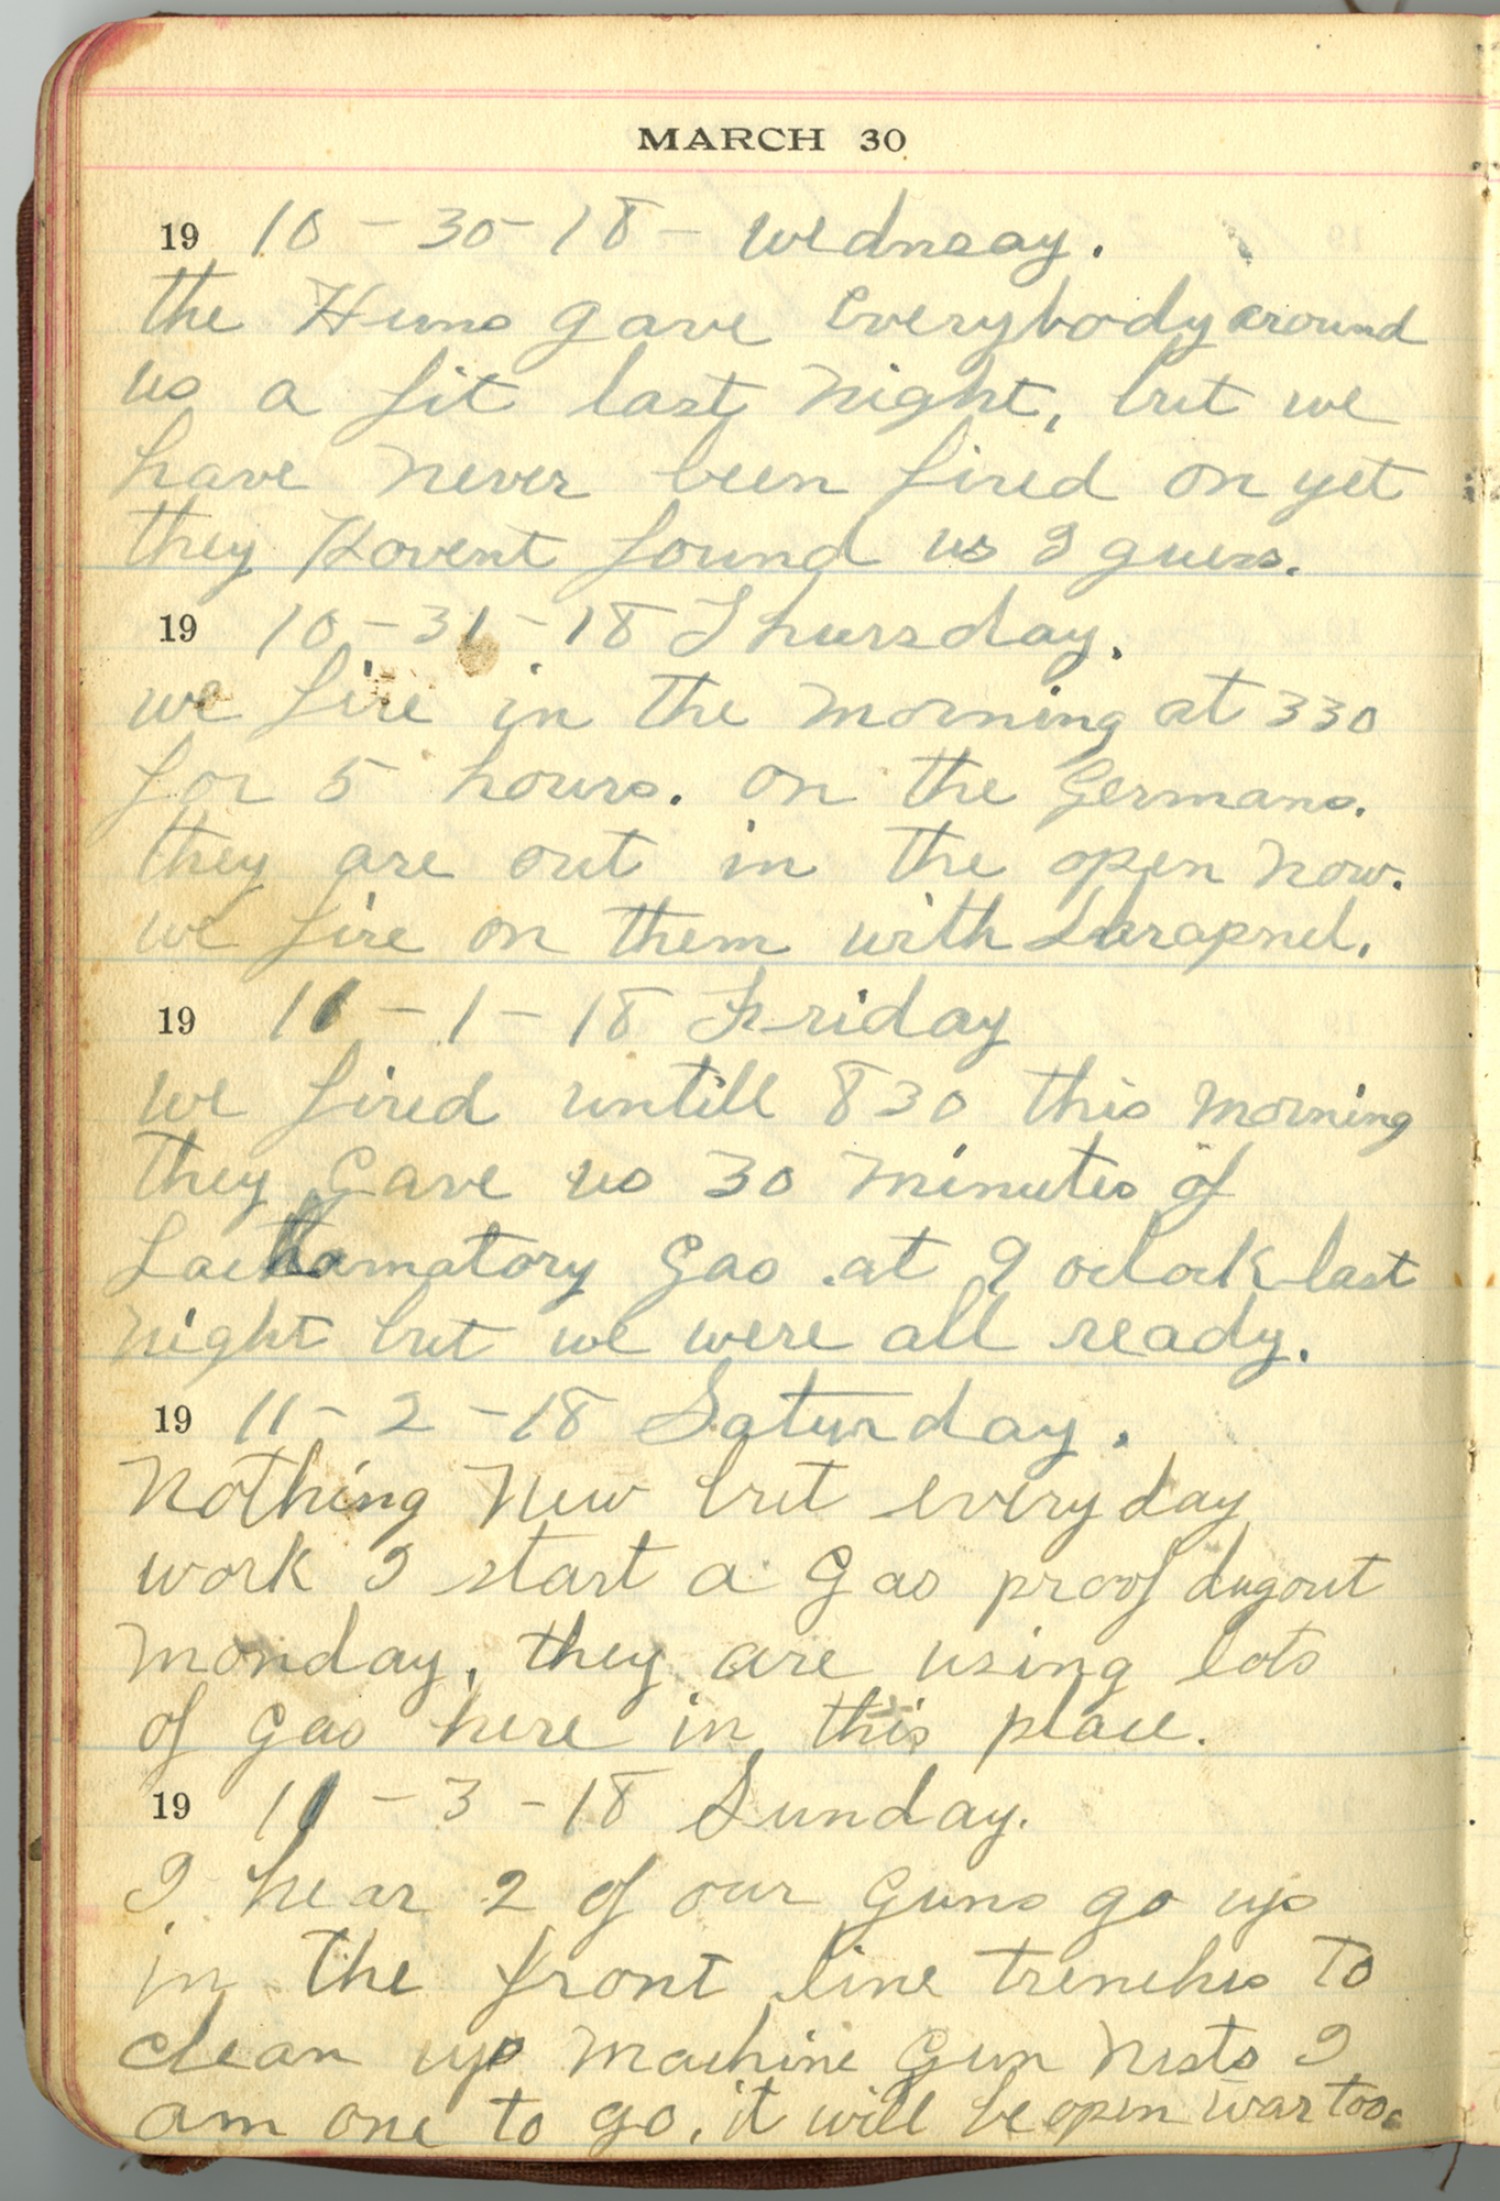 MARCH 30
19 10 - 30 - 18 - Wednsay.
the Huns gave Everybody around
us a fit last night, but we
have never been fired on yet
they Havent found us I guess.
19 10 - 31 - 18 Thursday.
we fire in the morning at 330
for 5 hours. on the Germans.
they are out in the open now.
we fire on them with
19 11 - 1 - 18 Friday
we fired untill 830 this morning
they gave us 30 minutes of
Gas at 9 oclock last
night but we were all ready.
19 11 - 2 - 18 Saturday.
Nothing New but every day
work I start a Gas proof dugout
Monday, they are using lots
of gas here in this place.
19 11 - 3 - 18 Sunday.
I hear 2 of our Guns go up
in the front line trenches to
clean up Machine Gun Nests I
am one to go, it will be open war too.